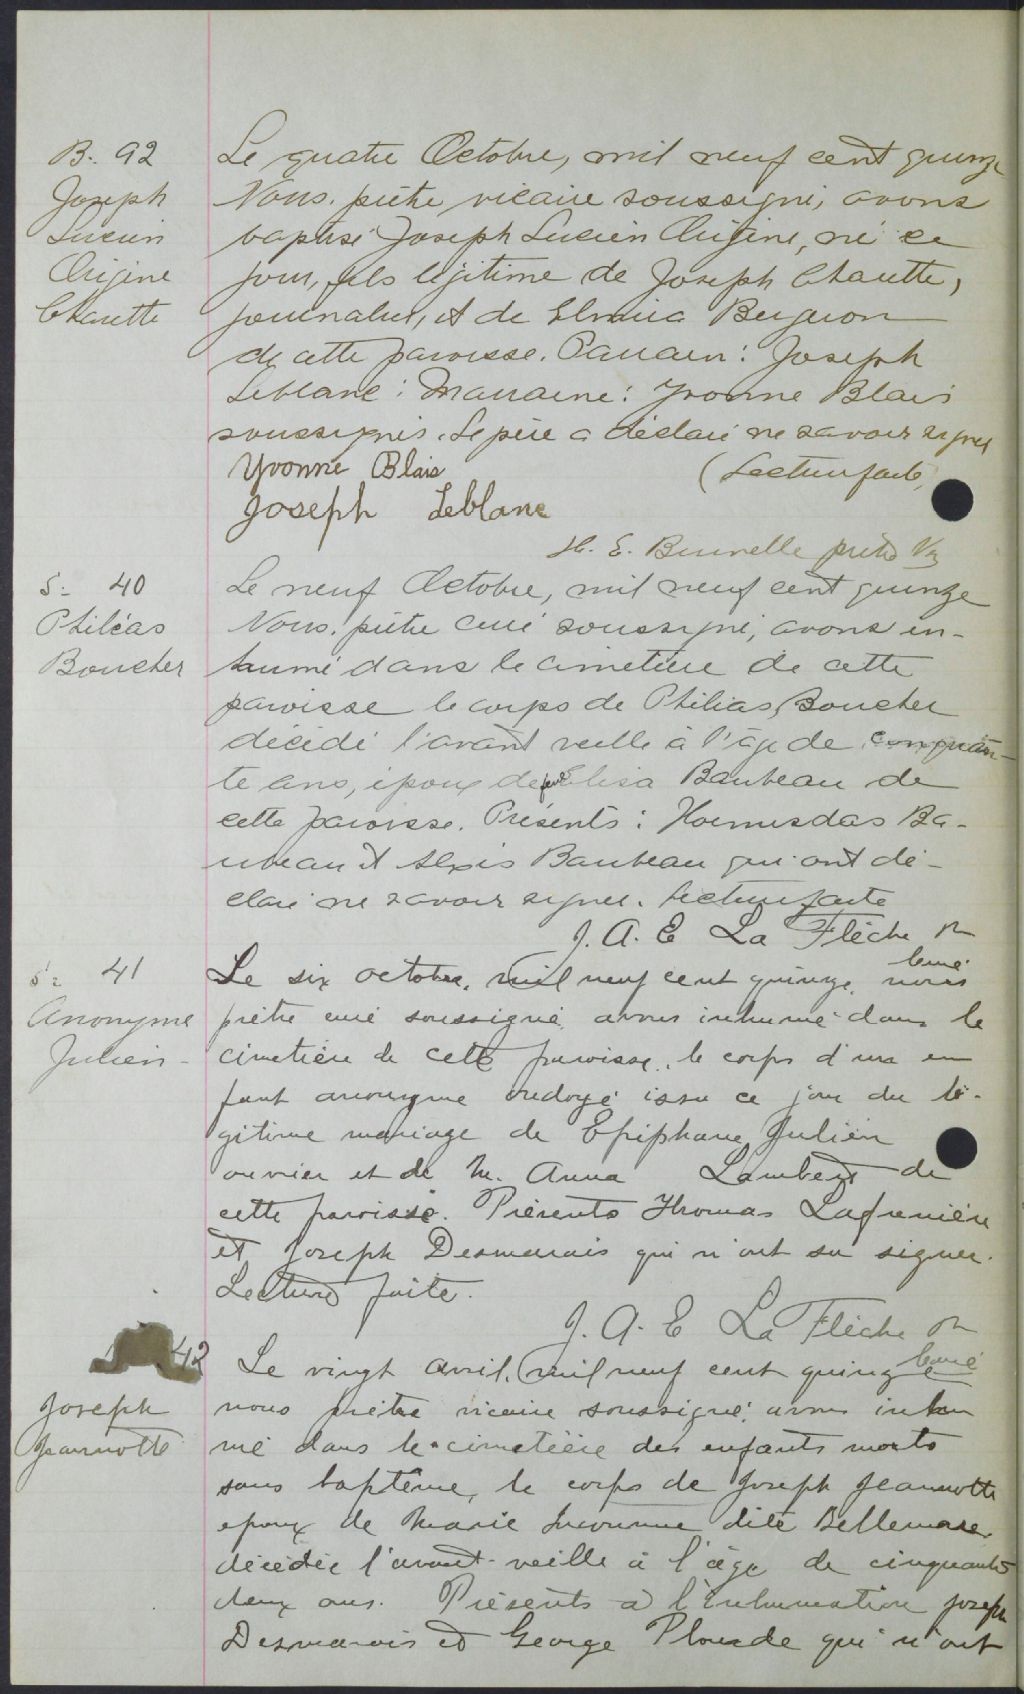 B. 92
Joseph
Lucien
Origine
Charette
Le quatre Octobre, mil neuf cent quinze
Nous. prêtre vicaire soussigné, avons
baptisé Joseph Lucien Origine, né ce
jour, fils légitime de Joseph Charette,
journalier, et de Elmira Bergeron
de cette paroisse. Parrain: Joseph
Leblanc: Marraine: Yvonne Blais
soussignés. Le père a déclaré ne savoir signer
Yvonne Blais
(Lecture faite)
Joseph Leblanc
H. E. Brunelle prêtre Vic
S. 40
Philéas
Boucher
Le neuf Octobre, mil neuf cent quinze
Nous. prêtre curé soussigné, avons in-
humé dans le cimetière de cette
paroisse le corps de Philias Boucher
décédé l'avant veille à l'âge de cinquan-
te ans, époux de feue Elisa Baribeau de
cette paroisse. Présents: Hormisdas Ba-
ribeau et Alexis Baribeau qui ont dé-
claré ne savoir signer. Lecture faite
J. A. E La Flèche ptre
curé
S. 41
Anonyme
Julien
Le six octobre, mil neuf cent quinze, nous
prêtre curé soussigné avons inhumé dans le
cimetière de cette paroisse, le corps d'un en
fant anonyme ondoyé issu ce jour du lé-
gitime mariage de Epiphane Julien
ouvrier et de M. Anna Lambert de
cette paroisse. Présents Thomas Lafrenière
et Joseph Desmarais qui n'ont su signer.
Lecture faite.
J. A. E La Flèche ptre
curé
42
Joseph
Jeannotte
Le vingt avril, mil neuf cent quinze
nous prêtre vicaire soussigné, avons inhu
mé dans le cimetière des enfants morts
sans baptême, le corps de Joseph Jeannotte
epoux de Marie Inconnue dite Bellemare.
décédée l'avant-veille à l'âge de cinquante
deux ans. Présents à l'inhumation Joseph
Desmarais et George Plourde qui n'ont